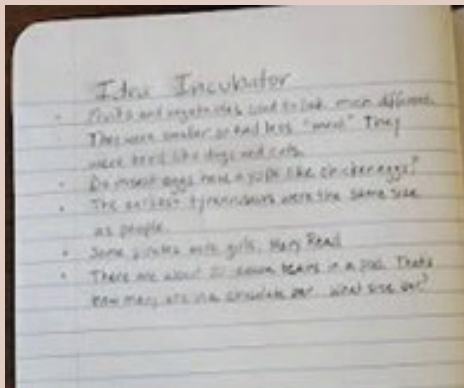 Idea Incubator
• Fruits and vegetables used to look much different.
They were smaller or had less "meat." They
were bred like dogs and cats.
• Do insect eggs have a yolk like chicken eggs?
• The earliest tyrannosaurs were the same size
as people.
• Some pirates were girls. Mary Read
• There are about beans in a pod. That's
how many are in a chocolate bar. What size bar?